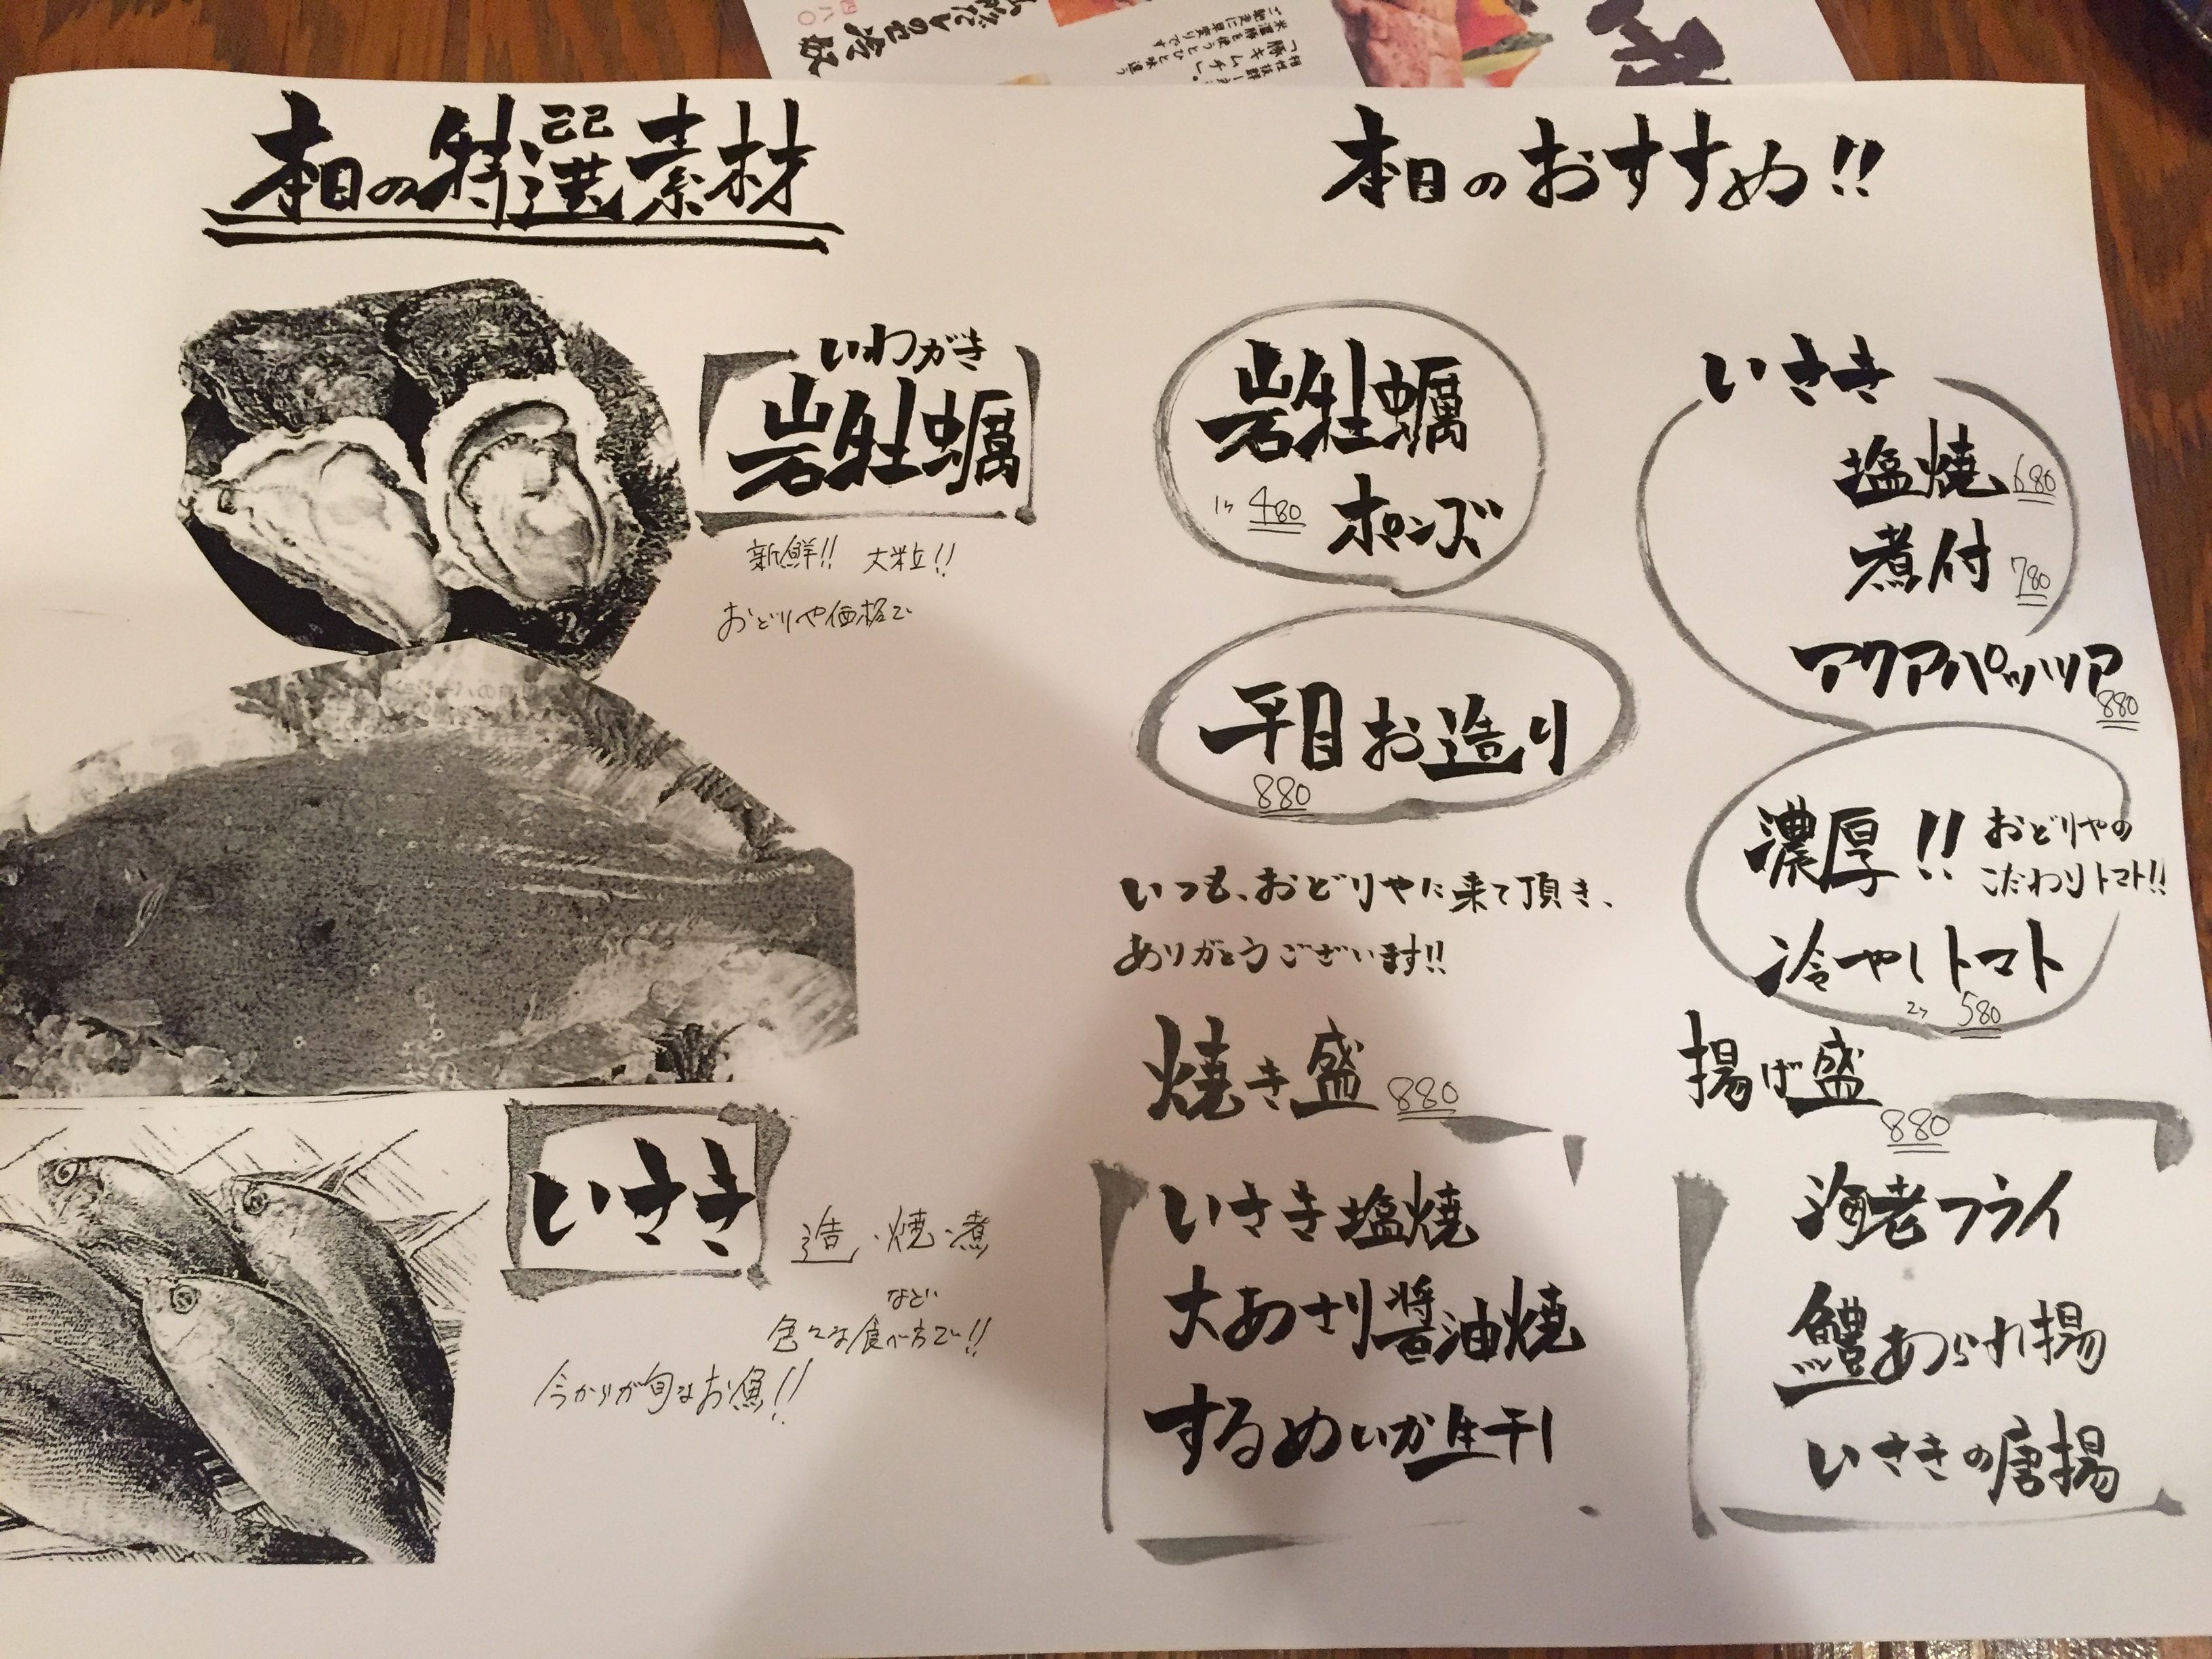 本日の特選素材
いわがき
岩牡蠣
新鮮!! 大粒!!
おどりや価格で
いさき
造・焼・煮
など
色々な食べ方で!!
今からが旬なお魚!!
本日のおすすめ!!
岩牡蠣
ポンズ
1ケ 480
平目お造り
880
いさき
塩焼 680
煮付 780
アクアパッツァ
880
濃厚!! おどりやの
こだわりトマト!!
冷やしトマト
2ケ 580
いつも、おどりやに来て頂き、
ありがとうございます!!
焼き盛 880
いさき塩焼
大あさり醤油焼
するめいか生干し
揚げ盛
880
海老フライ
鱧あられ揚
いさきの唐揚